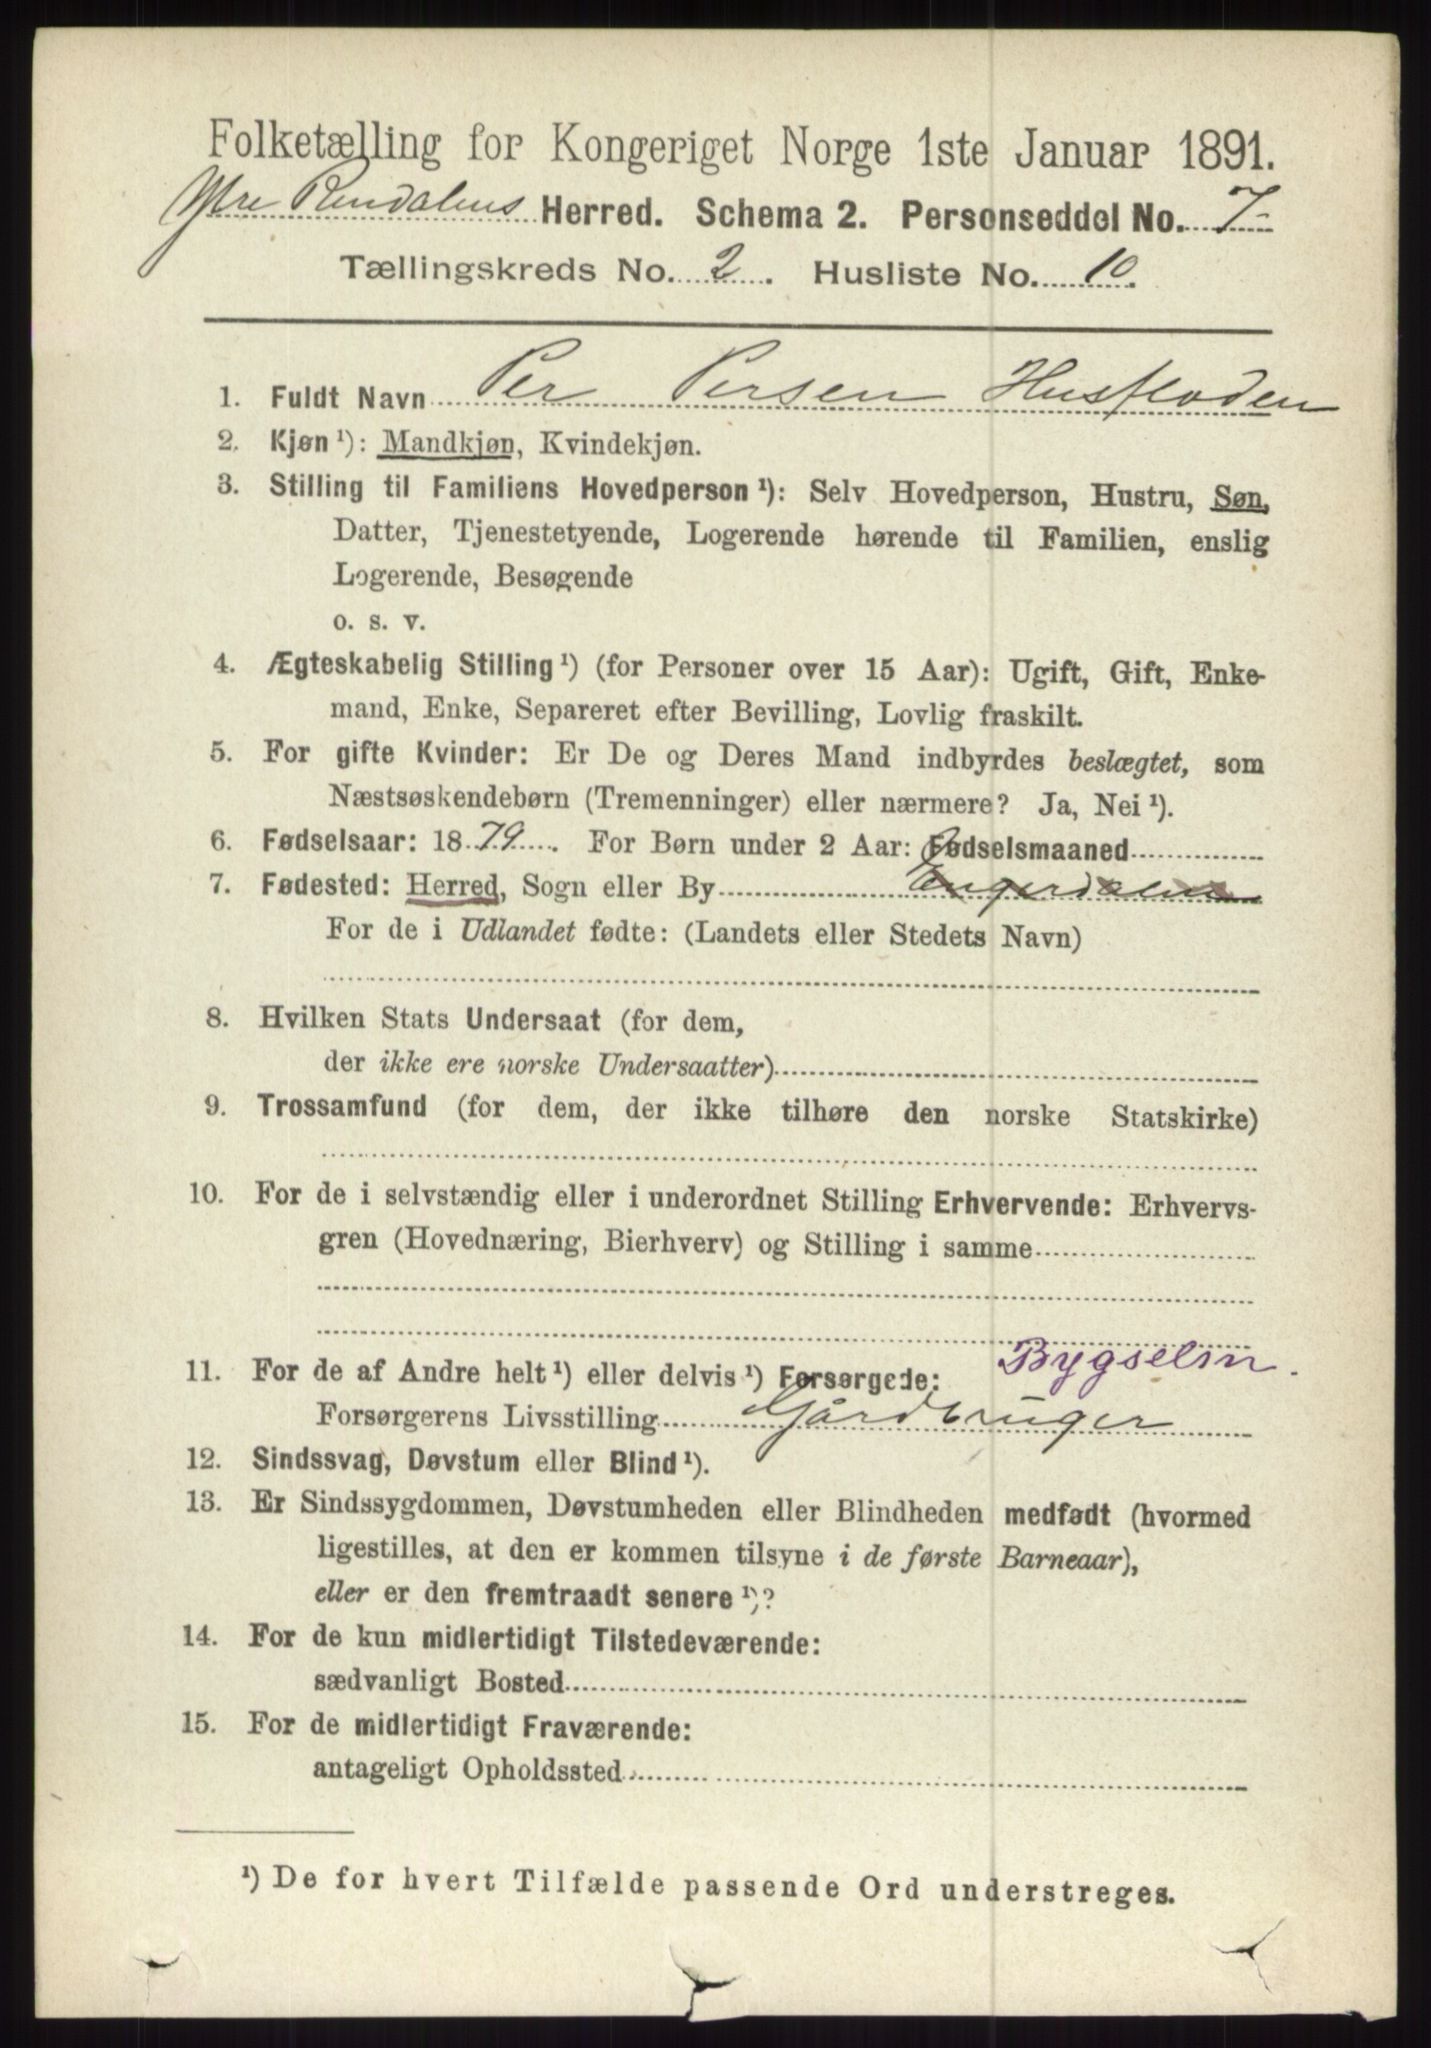 Folketælling for Kongeriget Norge 1ste Januar 1891.
Ytre Rendalens Herred. Schema 2. Personseddel No. 7
Tællingskreds No. 2. Husliste No. 10.
1. Fuldt Navn Per Persen Husfloden
2. Kjøn ¹): Mandkjøn, Kvindekjøn.
3. Stilling til Familiens Hovedperson ¹): Selv Hovedperson, Hustru, Søn,
Datter, Tjenestetyende, Logerende hørende til Familien, enslig
Logerende, Besøgende
o. s. v.
4. Ægteskabelig Stilling ¹) (for Personer over 15 Aar): Ugift, Gift, Enke-
mand, Enke, Separeret efter Bevilling, Lovlig fraskilt.
5. For gifte Kvinder: Er De og Deres Mand indbyrdes beslægtet, som
Næstsøskendebørn (Tremenninger) eller nærmere? Ja, Nei ¹).
6. Fødselsaar: 1879. For Børn under 2 Aar: Fødselsmaaned
7. Fødested: Herred, Sogn eller By Engerdalen
For de i Udlandet fødte: (Landets eller Stedets Navn)
8. Hvilken Stats Undersaat (for dem,
der ikke ere norske Undersaatter)
9. Trossamfund (for dem, der ikke tilhøre den norske Statskirke)
10. For de i selvstændig eller i underordnet Stilling Erhvervende: Erhvervs-
gren (Hovednæring, Bierhverv) og Stilling i samme
11. For de af Andre helt ¹) eller delvis ¹) Forsørgede: Bygselin.
Forsørgerens Livsstilling Gårdbruger
12. Sindssvag, Døvstum eller Blind ¹).
13. Er Sindssygdommen, Døvstumheden eller Blindheden medfødt (hvormed
ligestilles, at den er kommen tilsyne i de første Barneaar),
eller er den fremtraadt senere ¹)?
14. For de kun midlertidigt Tilstedeværende:
sædvanligt Bosted
15. For de midlertidigt Fraværende:
antageligt Opholdssted
¹) De for hvert Tilfælde passende Ord understreges.